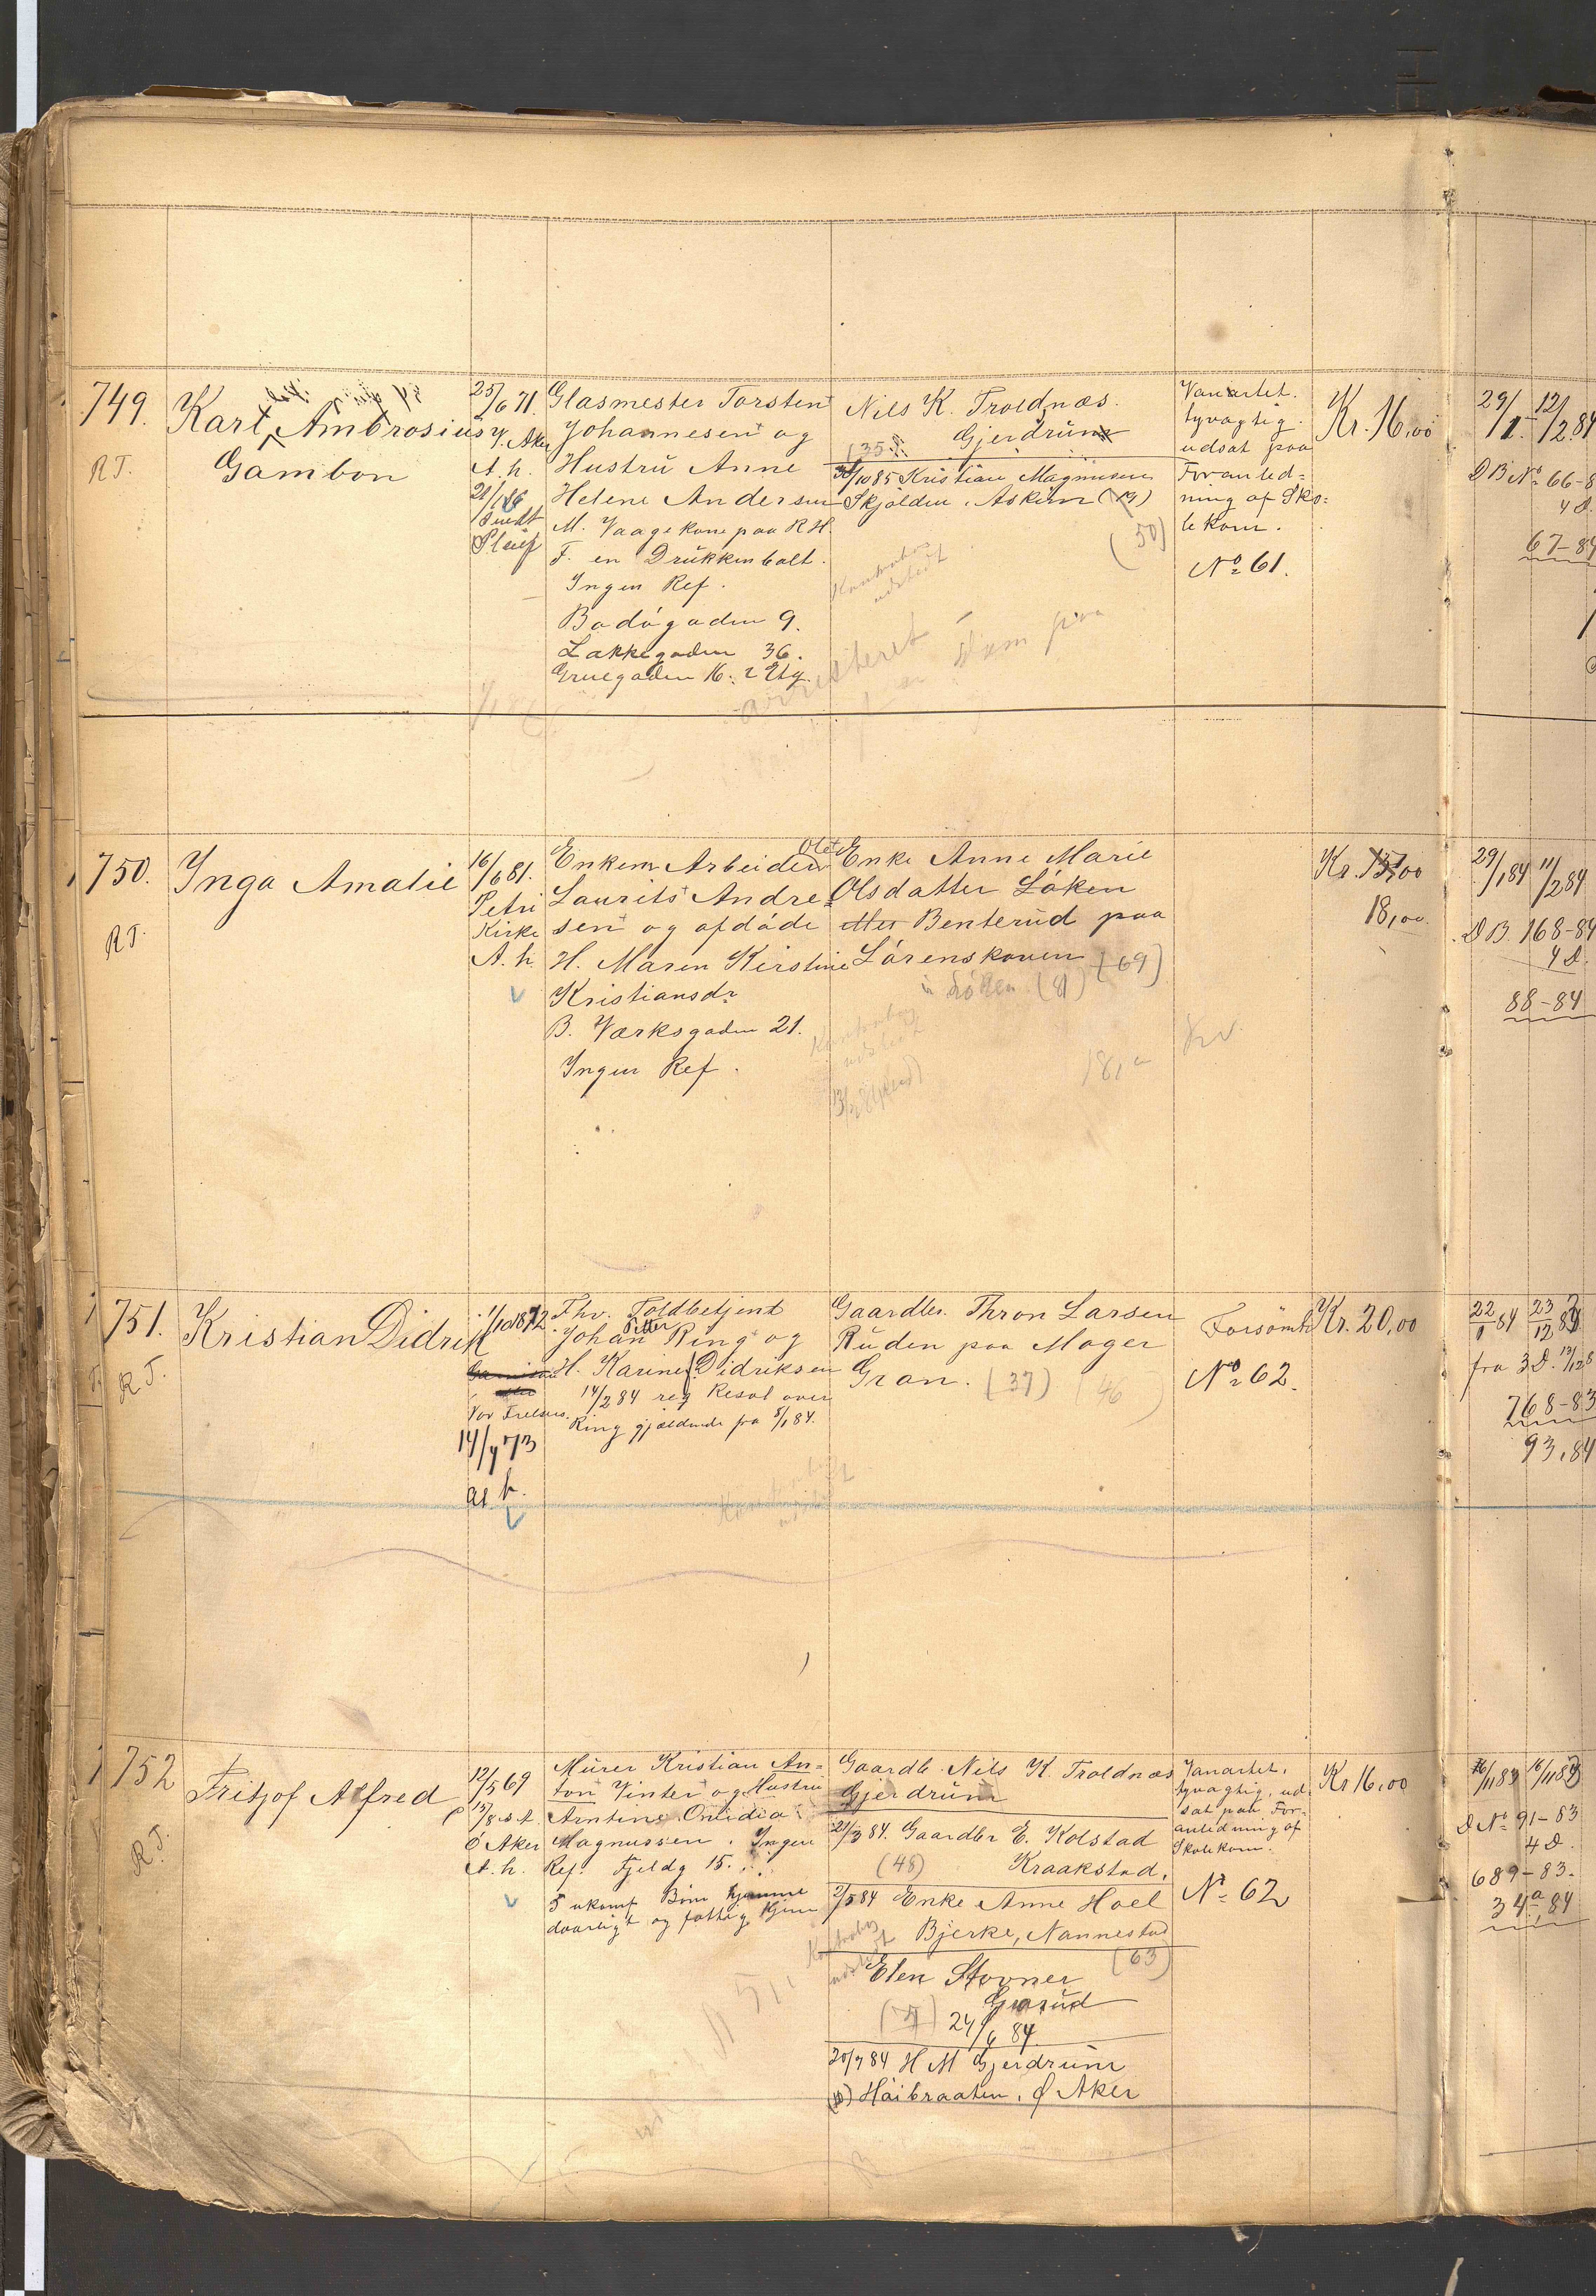 749.
R T.
Karl, Ambrosius
Gambon
25/6 71.
V. Aker
A. h.
21/1 86
Glasmester Torsten
Johannesen og
Hustru Anne
Helene Andersen
M. Vaagekone paa R H.
F. en Drukkenbolt.
Ingen Ref.
Bodögaden 9.
Lakkegaden 36.
Gruegaden 16. 2 Etg.
Nils K. Troldnæs.
Gjerdrum
(35)
30/10 85 Kristian Magnusen
Skjolden, Askim
(50)
Kontrabog
udstedt
arresteret
Vanartet.
tyvagtig.
udsat paa
Foranled=
ning af Sko=
lekom.
No 61.
Kr. 16,00
29/1. 12/2.84
D B No 66-8
4 D.
67-84
750.
R T.
Inga Amalie
16/6 81.
Petri
Kirke
A. h
Enkem Arbeider
Laurits Andre=
sen og afdöde
H. Maren Kirstine
Kristiansdr
B. Værksgaden 21.
Ingen Ref.
Enke Anne Marie
Olsdatter Löken
Benterud paa
Lörenskoven (69)
Löken (81)
Kontrabog
udstedt
Kr. 15,00
18,00.
29/1 84 11/2 84
D B. 168-84
4 D.
88-84
751.
R T.
Kristian Didrik
1/10 1872
Vor Frelsers.
14/4 73
A. h.
Fhv. Toldbetjent
Johan Petter Ring og
H. Karine Didriksen
14/2 84 reg Resol over
Ring gjældende fra 8/1 84.
Gaardbr. Thron Larsen
Ruden paa Moger
Gran. (37) (46
Kontrabog
udstedt
Forsömt
No 62.
Kr. 20,00
22/1 84 23/12 83
fra 3 D. 13/12 8
768-83
93,84
752
R T.
Fritjof Alfred
12/5 69
15/8 s. A.
Ö Aker
A. h.
Murer Kristian An=
ton Vinter og Hustru
Arntine Onlidia
Magnussen. Ingen
Ref. Fjeldg 15.
5 ukonf Börn hjemme
daarligt og fattig Hjem
Gaardb. Nils K. Troldnæs
Gjerdrum
21/3 84. Gaardbr E. Kolstad
(48) Kraakstad.
2/5 84 Enke Anne Hoel
Bjerke, Nannestad
(63)
Kontrabog
udstedt
Elen Stovner
Grorud
24/6 84
20/7 84 H M Gjerdrum
Höibraaten, Ö Aker
Vanartet,
tyvagtig, ud=
sat paa For=
anledning af
Skolekom.
No 62
Kr 16,00
16/11 83 16/11 83
D No 91-83
4 D.
689-83.
34a,84